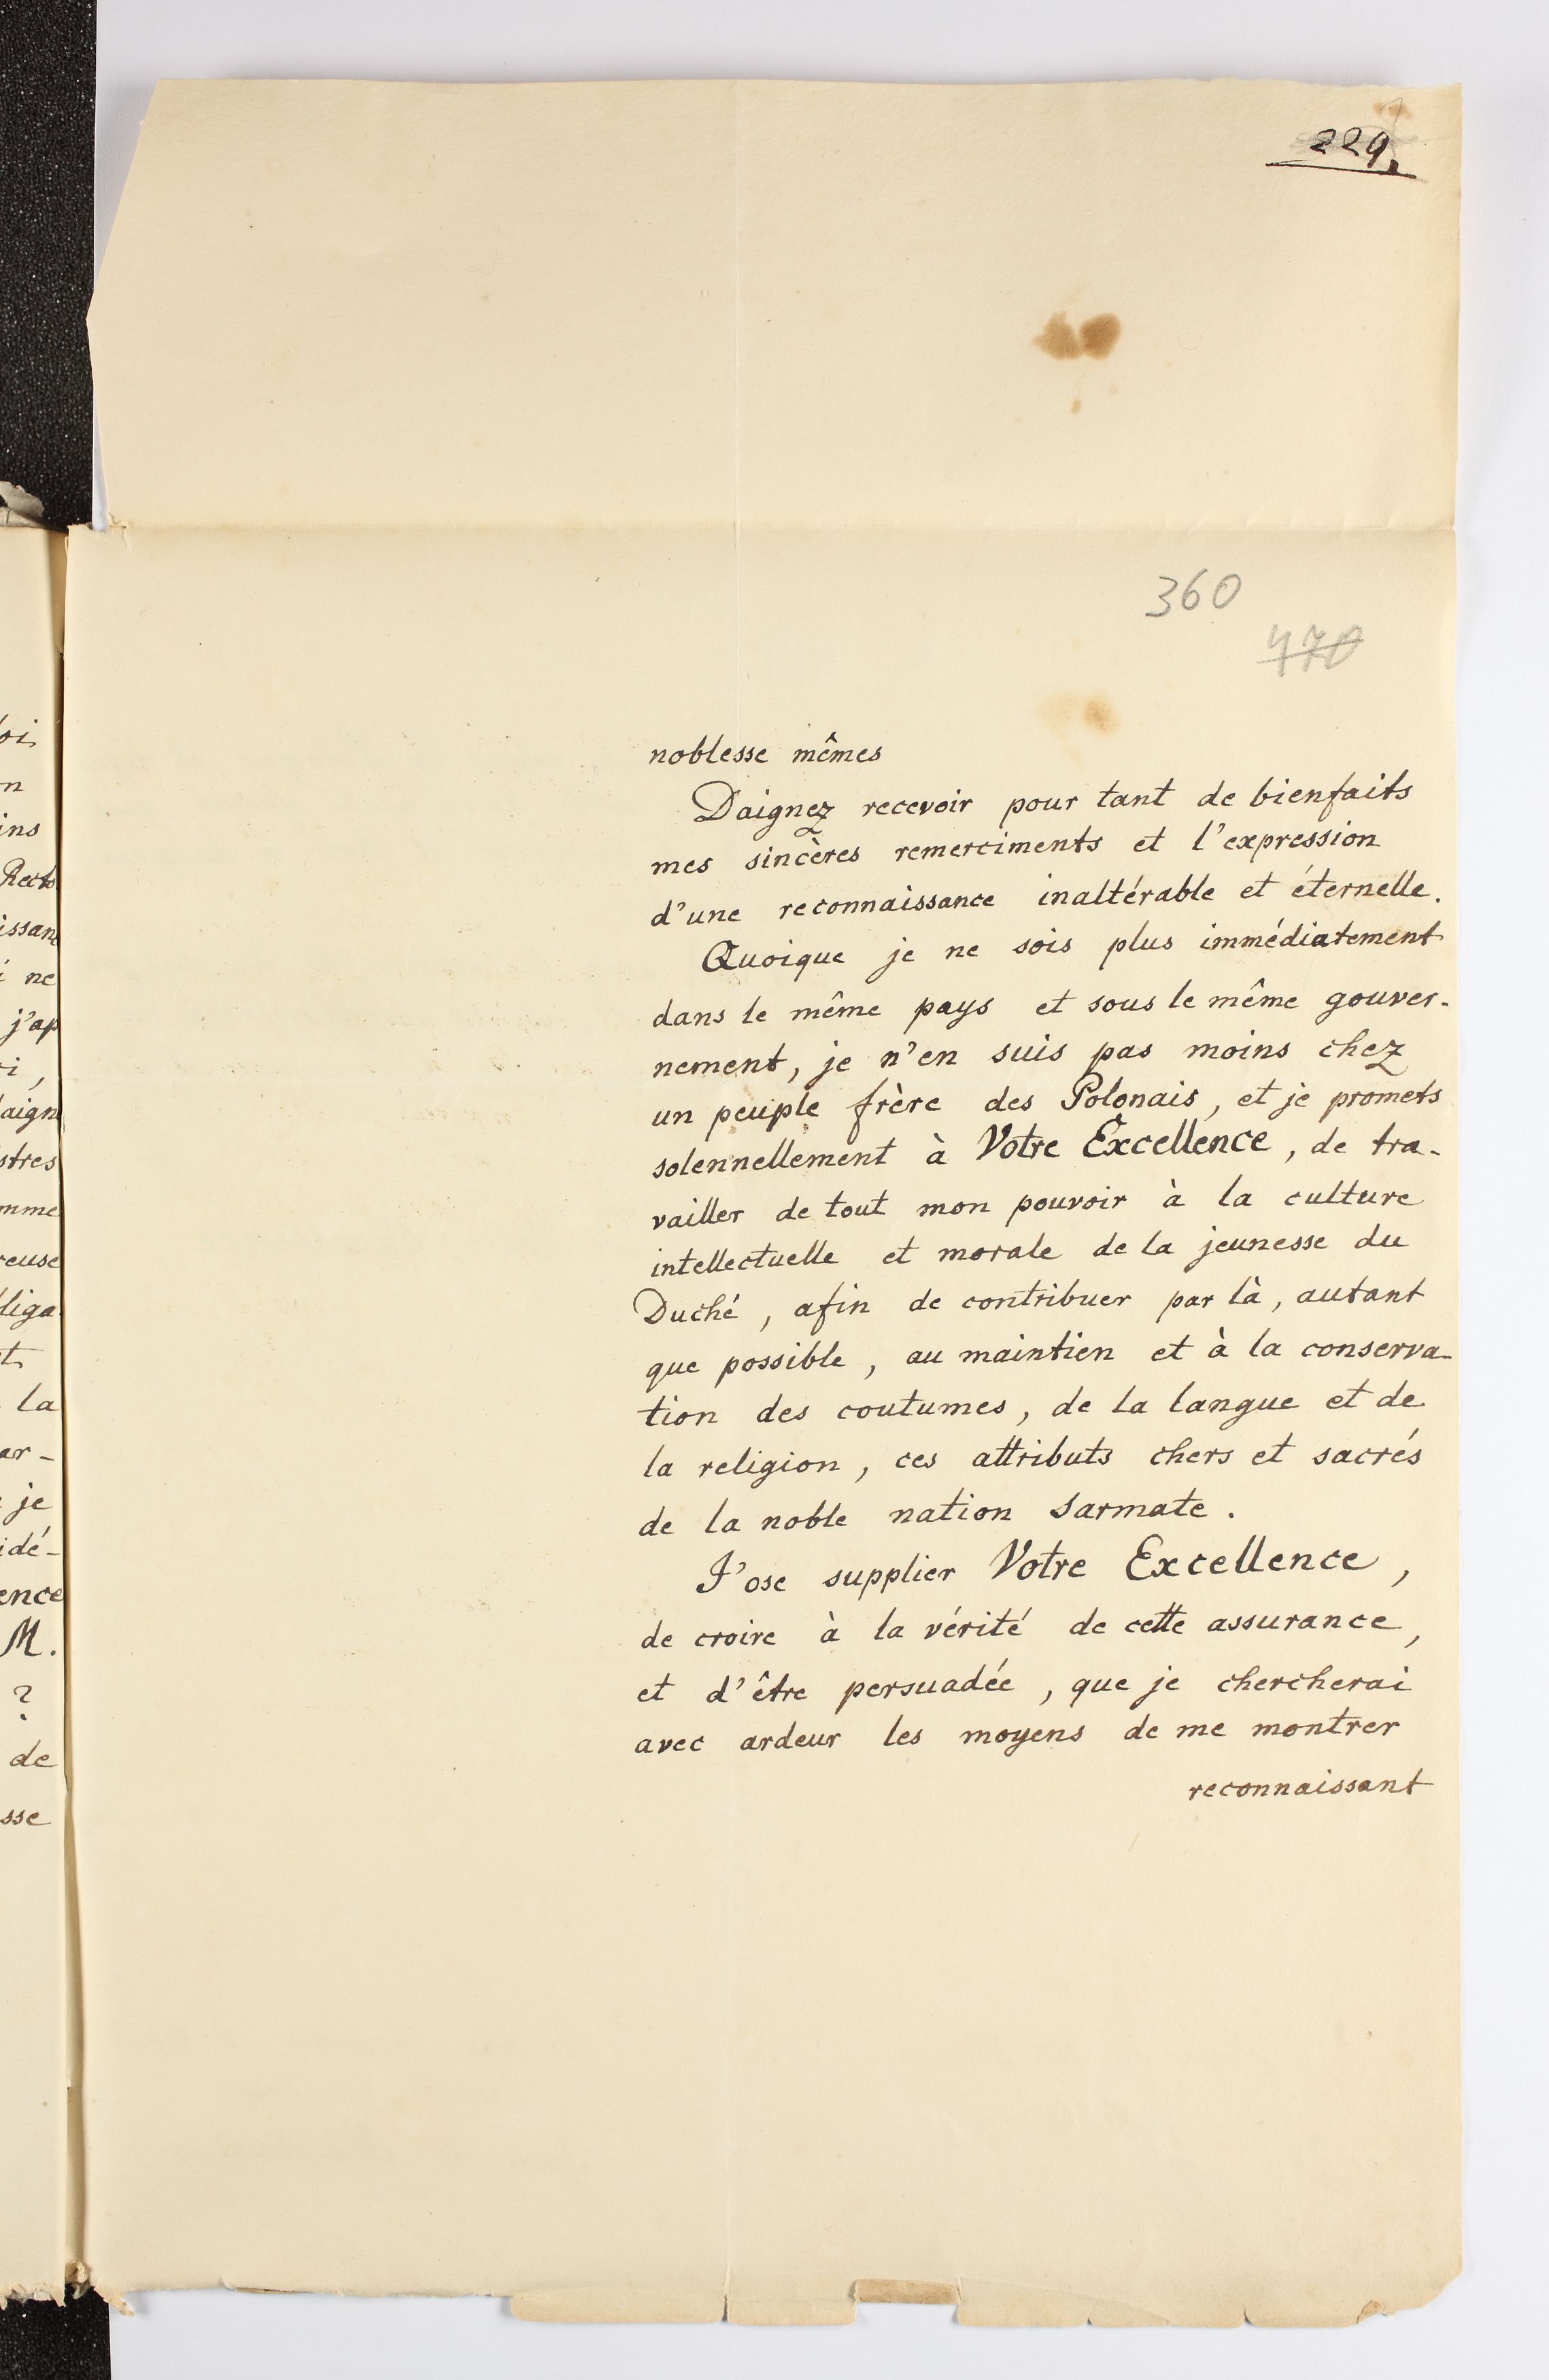 229.
360
470
noblesse mêmes
Daignez recevoir pour tant de bienfaits
mes sincères remerciments et l'expression
d'une reconnaissance inaltérable et éternelle.
Quoique je ne sois plus immédiatement
dans le même pays et sous le même gouver-
nement, je n'en suis pas moins chez
un peuple frère des Polonais, et je promets
solennellement à Votre Excellence, de tra-
vailler de tout mon pouvoir à la culture
intellectuelle et morale de la jeunesse du
Duché, afin de contribuer par là, autant
que possible, au maintien et à la conserva-
tion des coutumes, de la langue et de
la religion, ces attributs chers et sacrés
de la noble nation Sarmate.
J'ose supplier Votre Excellence,
de croire à la vérité de cette assurance,
et d'être persuadée, que je chercherai
avec ardeur les moyens de me montrer
reconnaissant